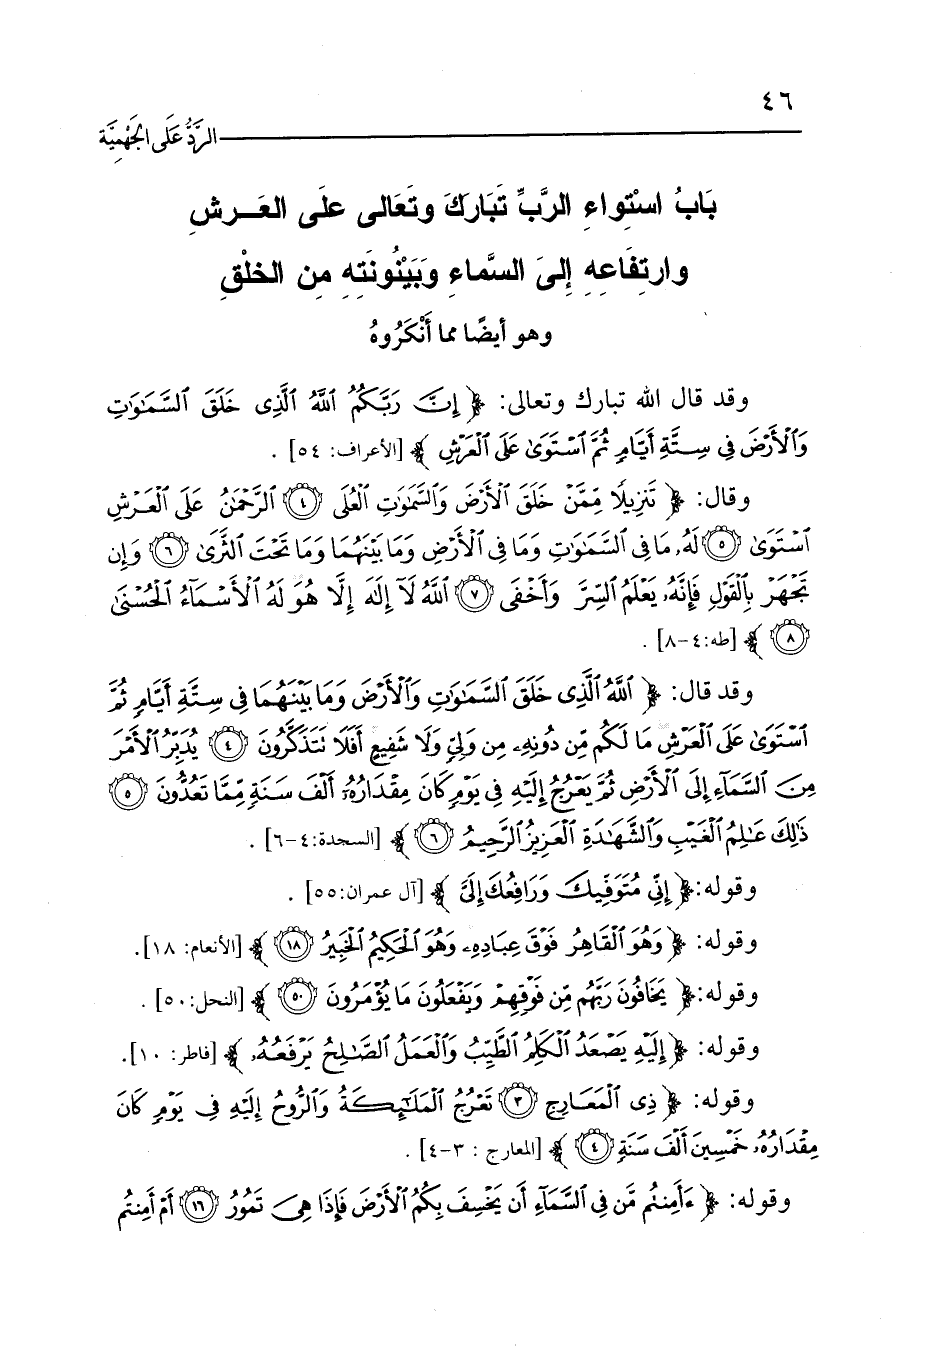 ٤٦
الرَّدُّ عَلَى الجَهْمِيَّة
بَابُ اسْتِواءِ الرَّبِّ تَبَارَكَ وتَعَالى علَى العَـرشِ
وارتِفَاعِهِ إِلىَ السَّماءِ وَبَيْنُونَتِهِ مِن الخلْقِ
وهو أيضًا مما أَنْكَرُوهُ
وقد قال الله تبارك وتعالى: ﴿ إِنَّ رَبَّكُمُ ٱللَّهُ ٱلَّذِى خَلَقَ ٱلسَّمَٰوَٰتِ
وَٱلْأَرْضَ فِى سِتَّةِ أَيَّامٍ ثُمَّ ٱسْتَوَىٰ عَلَى ٱلْعَرْشِ ﴾ [الأعراف: ٥٤] .
وقال: ﴿ تَنزِيلًا مِّمَّنْ خَلَقَ ٱلْأَرْضَ وَٱلسَّمَٰوَٰتِ ٱلْعُلَى ﴿٤﴾ ٱلرَّحْمَٰنُ عَلَى ٱلْعَرْشِ
ٱسْتَوَىٰ ﴿٥﴾ لَهُۥ مَا فِى ٱلسَّمَٰوَٰتِ وَمَا فِى ٱلْأَرْضِ وَمَا بَيْنَهُمَا وَمَا تَحْتَ ٱلثَّرَىٰ ﴿٦﴾ وَإِن
تَجْهَرْ بِٱلْقَوْلِ فَإِنَّهُۥ يَعْلَمُ ٱلسِّرَّ وَأَخْفَى ﴿٧﴾ ٱللَّهُ لَآ إِلَٰهَ إِلَّا هُوَ لَهُ ٱلْأَسْمَآءُ ٱلْحُسْنَىٰ
﴿٨﴾ ﴾ [طه:٤-٨] .
وقد قال: ﴿ ٱللَّهُ ٱلَّذِى خَلَقَ ٱلسَّمَٰوَٰتِ وَٱلْأَرْضَ وَمَا بَيْنَهُمَا فِى سِتَّةِ أَيَّامٍ ثُمَّ
ٱسْتَوَىٰ عَلَى ٱلْعَرْشِ مَا لَكُم مِّن دُونِهِۦ مِن وَلِىٍّ وَلَا شَفِيعٍ أَفَلَا تَتَذَكَّرُونَ ﴿٤﴾ يُدَبِّرُ ٱلْأَمْرَ
مِنَ ٱلسَّمَآءِ إِلَى ٱلْأَرْضِ ثُمَّ يَعْرُجُ إِلَيْهِ فِى يَوْمٍ كَانَ مِقْدَارُهُۥٓ أَلْفَ سَنَةٍ مِّمَّا تَعُدُّونَ ﴿٥﴾
ذَٰلِكَ عَٰلِمُ ٱلْغَيْبِ وَٱلشَّهَٰدَةِ ٱلْعَزِيزُ ٱلرَّحِيمُ ﴿٦﴾ ﴾ [السجدة:٤-٦] .
وقوله: ﴿ إِنِّى مُتَوَفِّيكَ وَرَافِعُكَ إِلَىَّ ﴾ [آل عمران:٥٥] .
وقوله: ﴿ وَهُوَ ٱلْقَاهِرُ فَوْقَ عِبَادِهِۦ وَهُوَ ٱلْحَكِيمُ ٱلْخَبِيرُ ﴿١٨﴾ ﴾ [الأنعام: ١٨].
وقوله: ﴿ يَخَافُونَ رَبَّهُم مِّن فَوْقِهِمْ وَيَفْعَلُونَ مَا يُؤْمَرُونَ ﴿٥٠﴾ ﴾ [النحل:٥٠] .
وقوله: ﴿ إِلَيْهِ يَصْعَدُ ٱلْكَلِمُ ٱلطَّيِّبُ وَٱلْعَمَلُ ٱلصَّٰلِحُ يَرْفَعُهُۥ ﴾ [فاطر: ١٠].
وقوله: ﴿ ذِى ٱلْمَعَارِجِ ﴿٣﴾ تَعْرُجُ ٱلْمَلَٰٓئِكَةُ وَٱلرُّوحُ إِلَيْهِ فِى يَوْمٍ كَانَ
مِقْدَارُهُۥ خَمْسِينَ أَلْفَ سَنَةٍ ﴿٤﴾ ﴾ [المعارج : ٣-٤] .
وقوله: ﴿ ءَأَمِنتُم مَّن فِى ٱلسَّمَآءِ أَن يَخْسِفَ بِكُمُ ٱلْأَرْضَ فَإِذَا هِىَ تَمُورُ ﴿١٦﴾ أَمْ أَمِنتُم